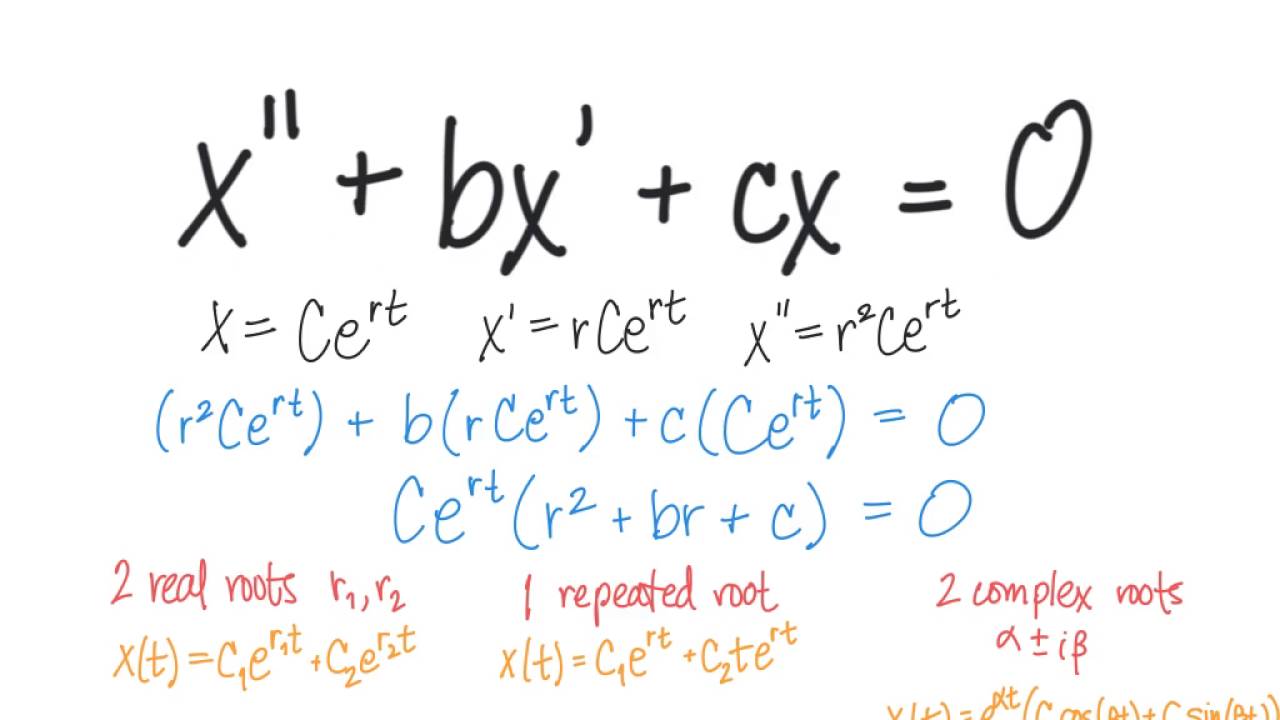 x'' + bx' + cx = 0
x = Ce^{rt} x' = rCe^{rt} x'' = r²Ce^{rt}
(r²Ce^{rt}) + b(rCe^{rt}) + c(Ce^{rt}) = 0
Ce^{rt}(r² + br + c) = 0
2 real roots r₁, r₂
x(t) = C₁e^{r₁t} + C₂e^{r₂t}
1 repeated root
x(t) = C₁e^{rt} + C₂te^{rt}
2 complex roots
α ± iβ
x(t) = e^{αt}(C cos(βt) + C sin(βt))